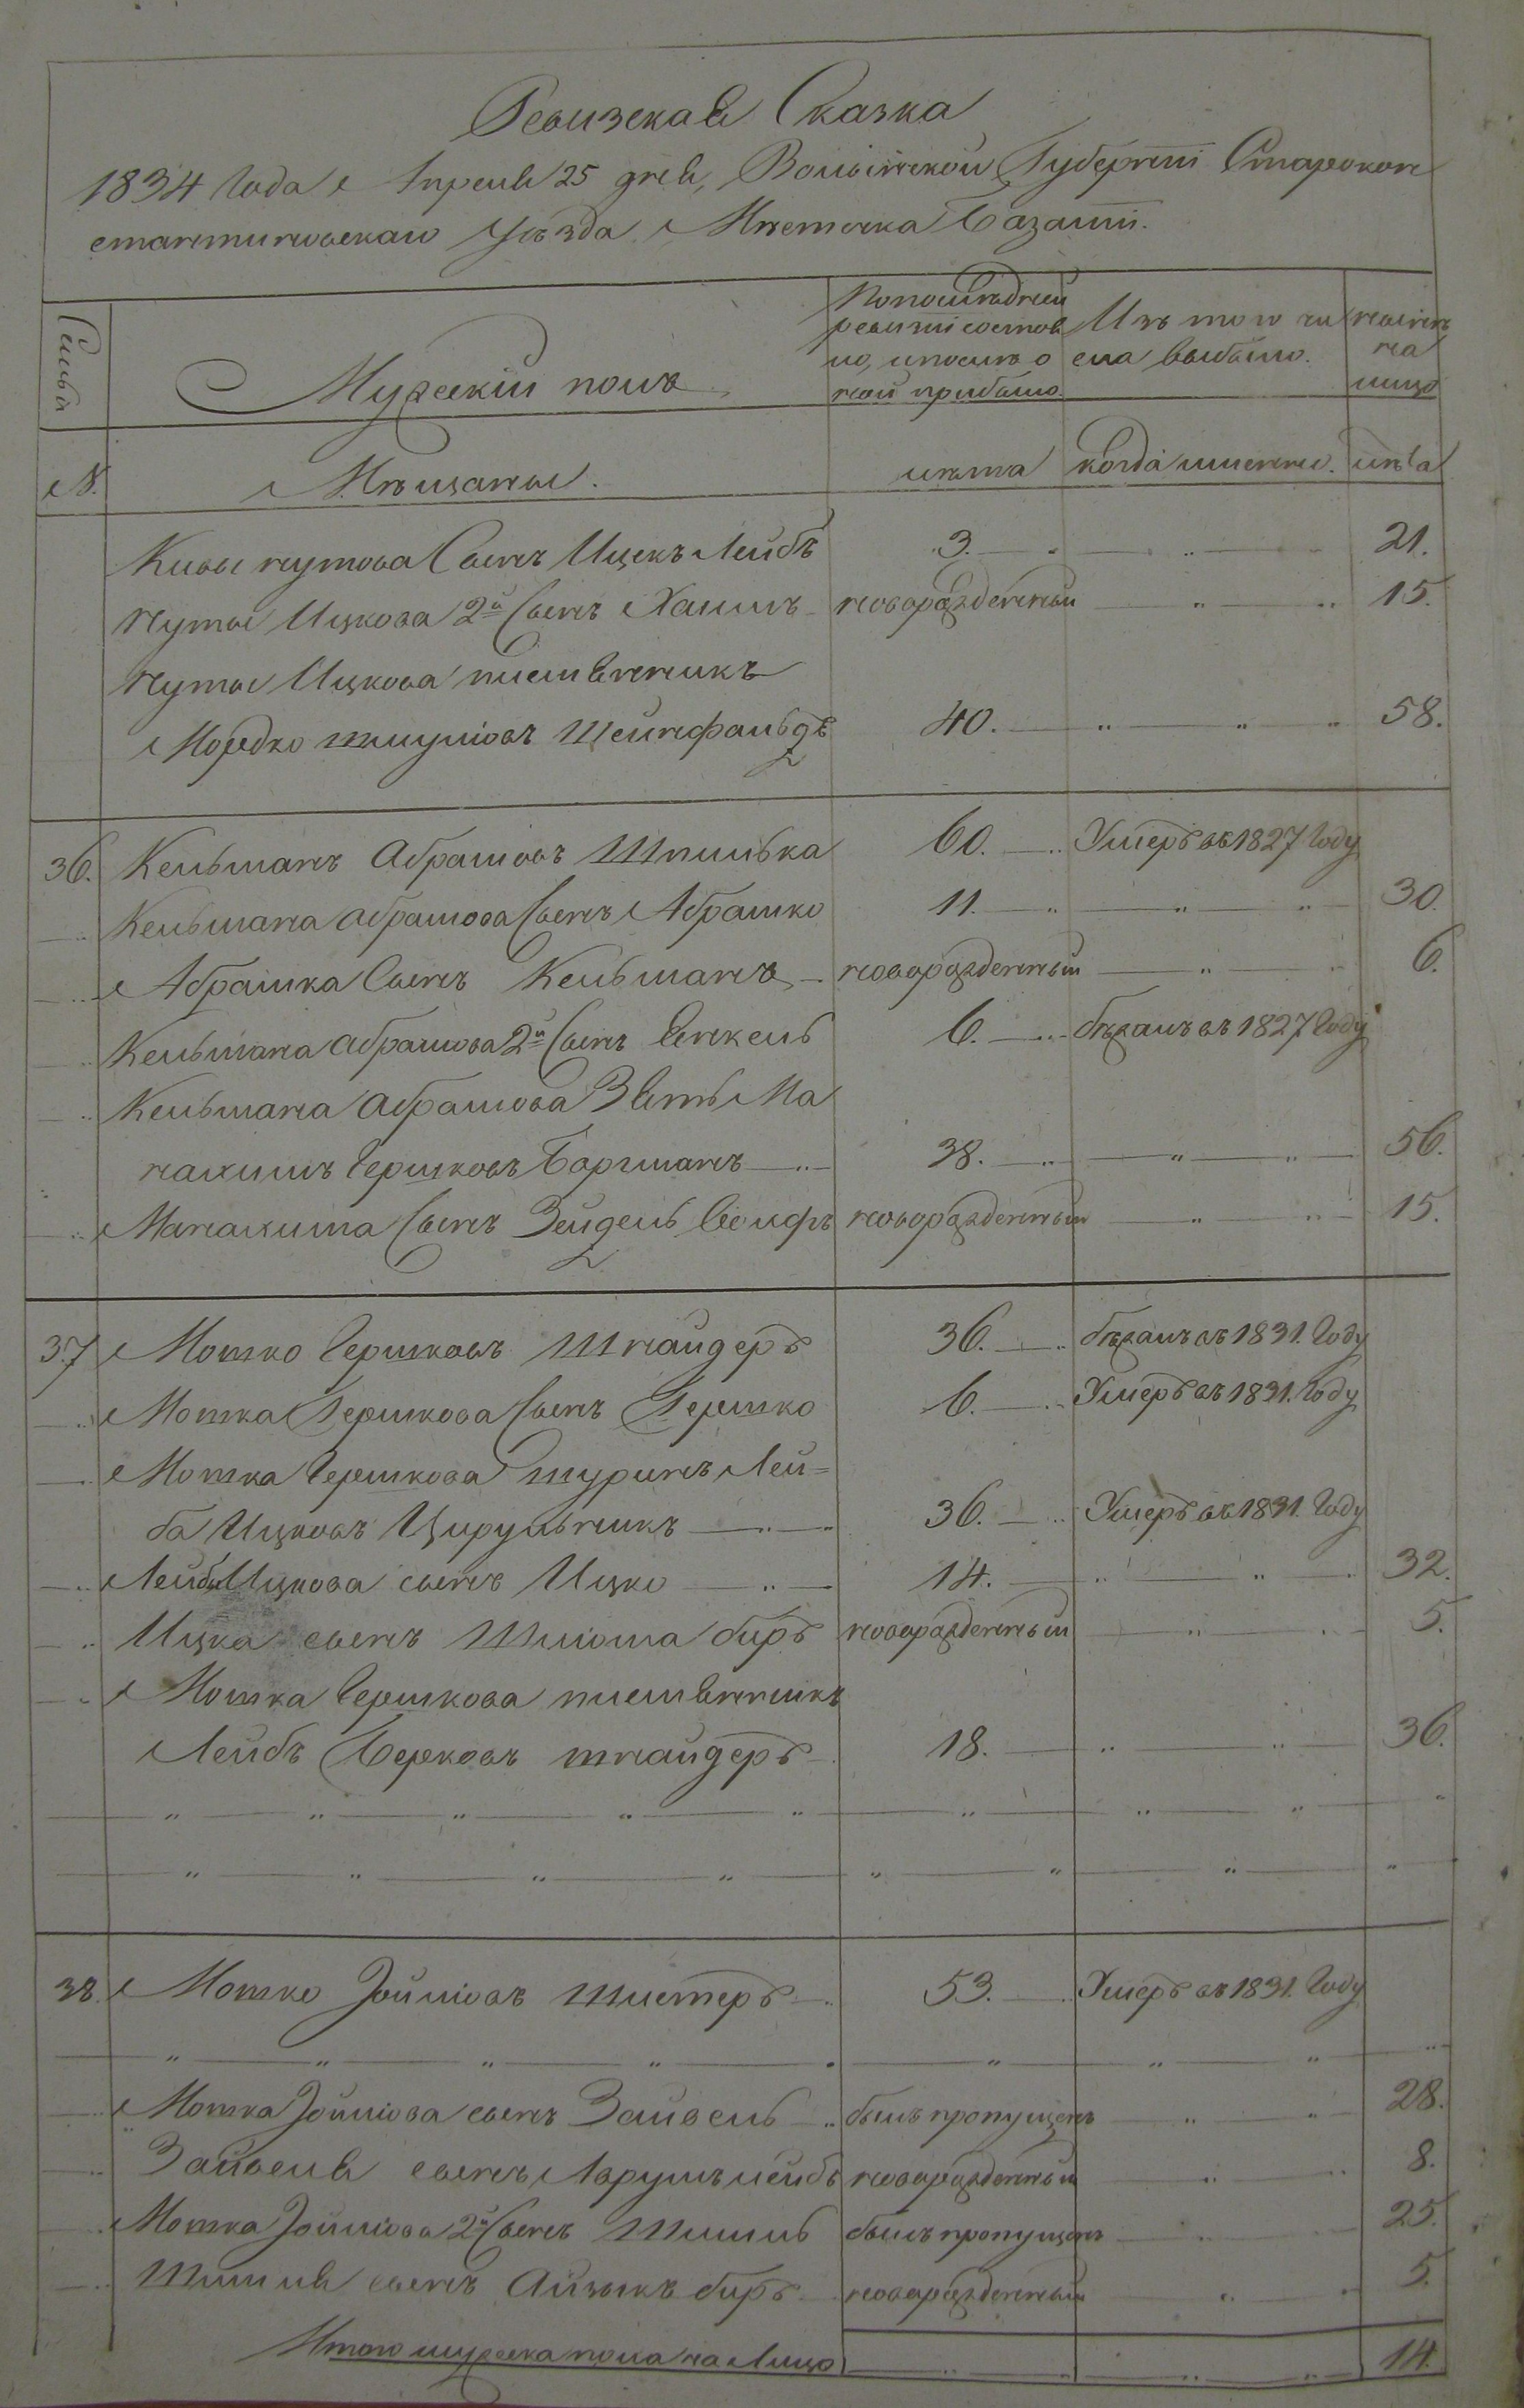 Ревизская Сказка
1834 Года Апреля 25 дня, Волынской Губерніи Старокон
стантиновскаго Уѣзда Мѣстечка Базаліи.
Семьи
Мужескій полъ
Попослѣдней
ревизіи состоя
ло, ипослѣ о
ной прибыло.
Изъ того чи
сла выбыло.
нынѣ
на
лицо
N.
Мѣщаны.
лѣта
когда именно.
лѣта
Кивы нутова Сынъ Ицекъ Лейбъ 3. 21.
Нуты Ицкова 2й Сынъ Хаимъ новорожденный 15.
Нуты Ицкова племянникъ
Мордко шмуліовъ Штейнфальдъ 40. 58.
36. Кельманъ Абрамовъ Шпилька 60. Умеръ въ 1827 Году
Кельмана абрамова Сынъ Абрамко 11. 30.
Абрамка Сынъ Кельманъ новорожденный 6.
Кельмана абрамова 2й Сынъ Янкель 6. бѣжалъ въ 1827 Году
Кельмана абрамова Зять Ма
нахимъ Гершковъ Боргманъ 38. 56.
Манахима Сынъ Зейдель Іосифъ новорожденный 15.
37 Мотко Гершковъ Шнайдеръ 36. бѣжалъ въ 1831. Году
Мотка Гершкова Сынъ Гершко 6. Умеръ въ 1831. Году
Мотка Гершкова шуринъ Лей=
ба Ицковъ Цирульникъ 36. Умеръ въ 1831. Году
Лейбы Ицкова сынъ Ицко 14. 32.
Ицка сынъ Шліома биръ новорожденный 5.
Мотка Гершкова племянникъ
Лейбъ Берковъ шнайдеръ 18. 36.
38. Мотко Іойліовъ Шлетеръ 53. Умеръ въ 1831. Году
Мотка Іойліова сынъ Зайвель былъ пропущенъ 28.
Зайвеля сынъ Аврумъ лейбъ новорожденный 8.
Мотка Іойліова 2й Сынъ Шмиль былъ пропущенъ 25.
Шмиля сынъ Айзыкъ биръ новорожденный 5.
Итого мужеска пола на Лицо 14.